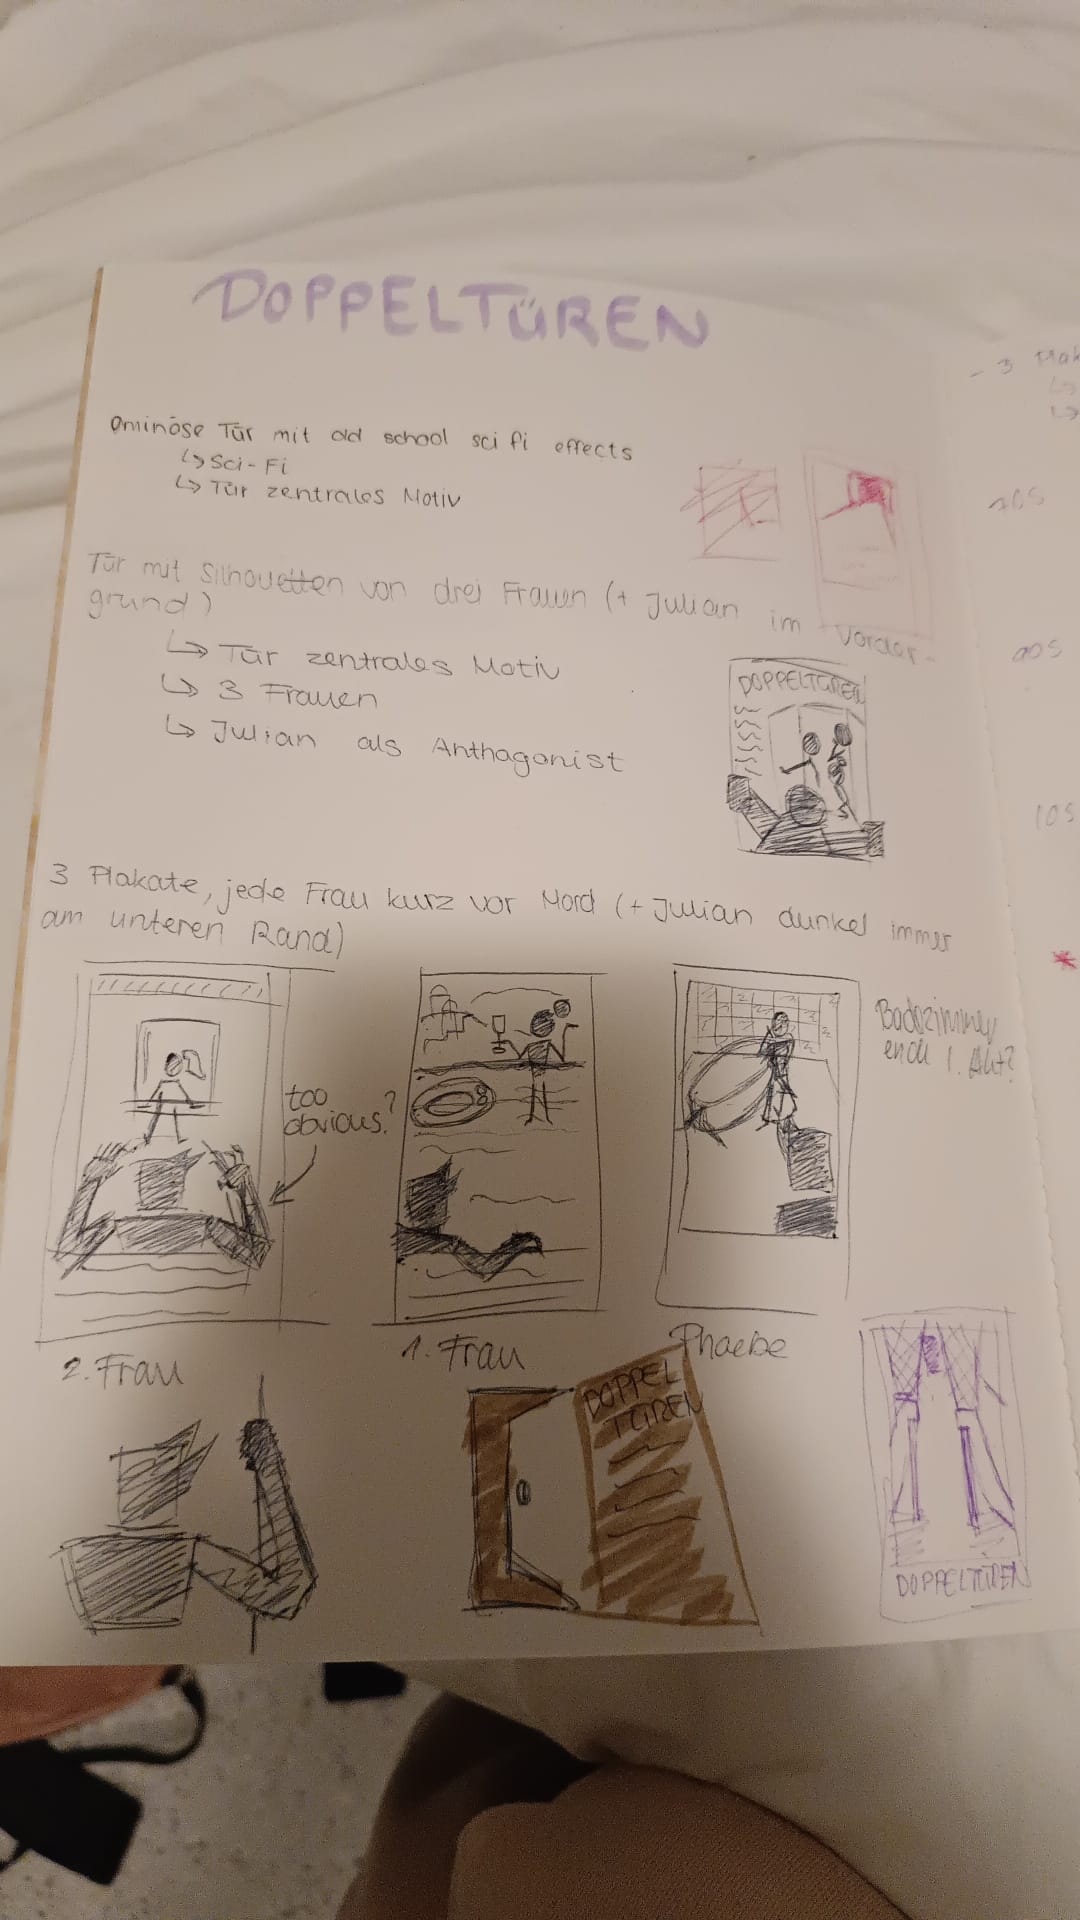 DOPPELTÜREN
Ominöse Tür mit old school sci fi effects
↳ Sci-Fi
↳ Tür zentrales Motiv
Tür mit Silhouetten von drei Frauen (+ Julian im Vorder-
grund)
↳ Tür zentrales Motiv
↳ 3 Frauen
↳ Julian als Anthagonist
DOPPELTÜREN
3 Plakate, jede Frau kurz vor Mord (+ Julian dunkel immer
am unteren Rand)
too
obvious?
Badezimmer
ende 1. Akt?
2. Frau
1. Frau
Phaebe
DOPPEL
TÜREN
DOPPELTÜREN
- 3
90S
10S